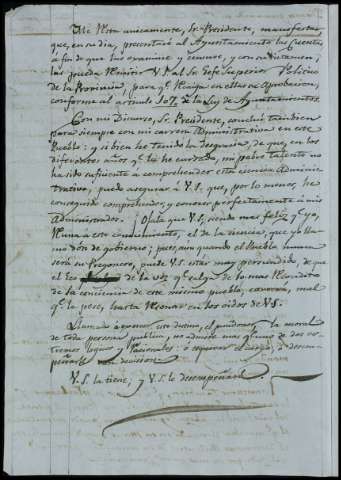 Me resta unicamente, Sr. Presidente, manifestar
que, en su dia, presentaré al Ayuntamiento las Cuentas
a fin de que las examine y censure, y con su dictamen,
las pueda remitir V.S. al Sr. Gefe Superior Politico
de la Provincia, para qe. recaiga en ellas su Aprobacion,
conforme al articulo 107 de la Ley de Ayuntamientos.
Con mi Discurso, Sr. Presidente, concluí tambien
para siempre con mi carrera Administrativa en este
Pueblo: y si bien he tenido la desgracia, de que, en los
diferentes años qe. la he cursado, mi pobre talento no
ha sido suficiente a comprehender esta ciencia Adminis-
trativa; puedo asegurar á V.S. que, por lo menos, he
conseguido comprehender, y conocer perfectamente á mis
Administrados. Ojala que V.S., siendo mas feliz qe. yo,
reuna á este conocimiento, el de la ciencia, que yo lla-
mo dón de gobierno; pues, aun quando el Pueblo
será su Pregonero, puede V.S. estar muy persuadido, de que
el Eco de la voz qe. salga de lo mas recondito
de la conciencia de este mismo pueblo, causará, mal
qe. le pese, hasta resonar en los oidos de V.S.
el pundonor, y la moral
de toda persona publica, no admite mas qe. uno de dos es-
tremos logicos y racionales: ó separarse del cargo, ó desem-
peñarle con decision.
V.S. la tiene; y V.S. lo desempeñará.